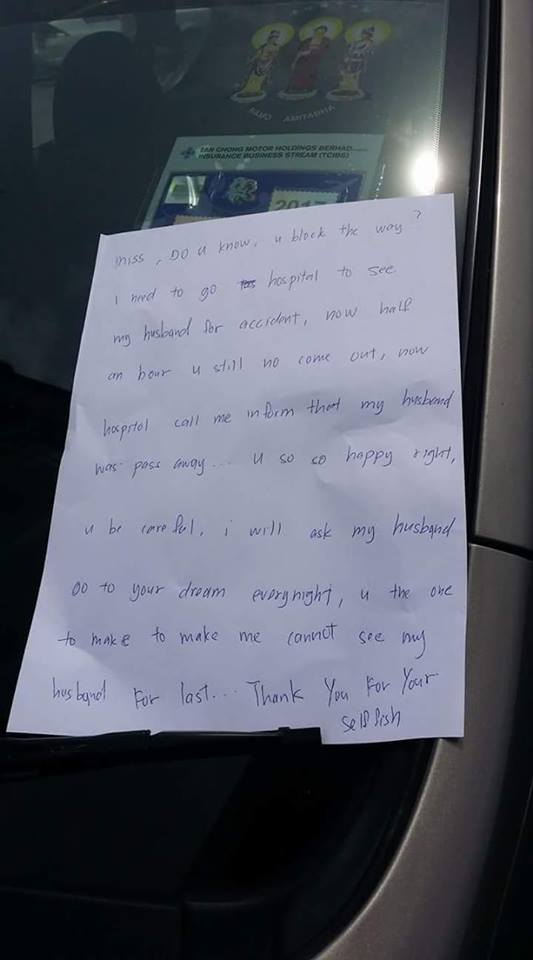 BUJO AMITABHA
TAN CHONG MOTOR HOLDINGS BERHAD
INSURANCE BUSINESS STREAM (TCIBS)
2017
miss, Do u know, u block the way?
I need to go hospital to see
my husband for accident, now half
an hour u still no come out, now
hospital call me inform that my husband
was pass away... u so so happy right,
u be careful, i will ask my husband
Go to your dream everynight, u the one
to make to make me cannot see my
husband For last... Thank You For Your
selfish